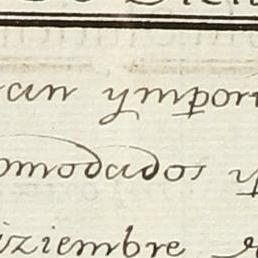 an ympor
omodados y
iziembre